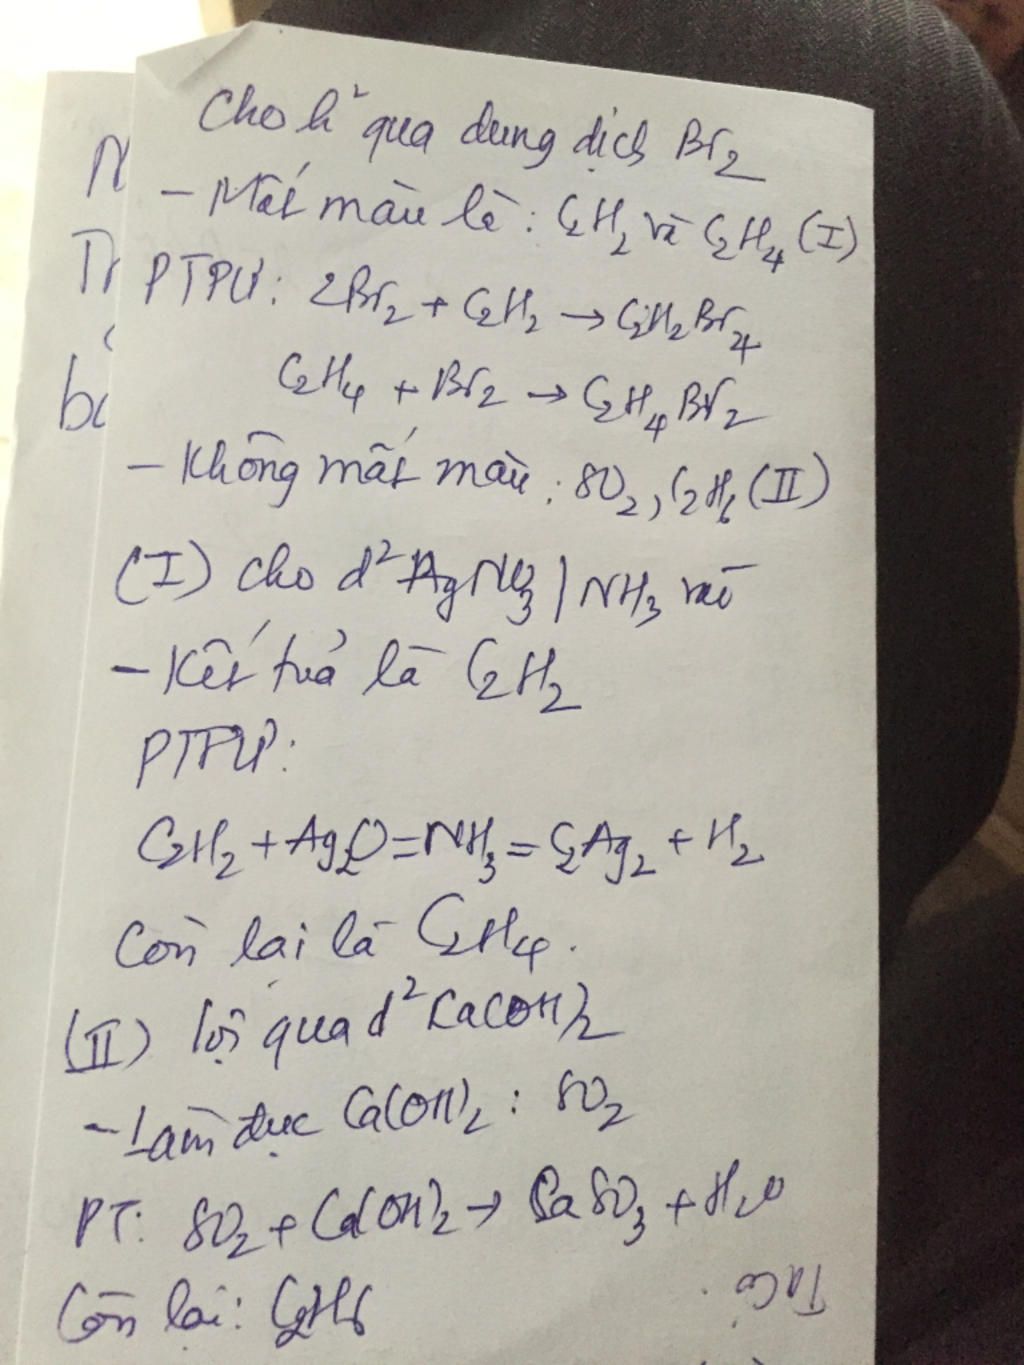 Cho h² qua dung dịch Br₂
- Mất màu là: C₂H₂ và C₂H₄ (I)
PTPƯ: 2Br₂ + C₂H₂ → C₂H₂Br₄
C₂H₄ + Br₂ → C₂H₄Br₂
- Không mất màu: SO₂, C₂H₆ (II)
(I) cho d² AgNO₃ | NH₃ vào
- Kết tủa là C₂H₂
PTPƯ:
C₂H₂ + Ag₂O = NH₃ = C₂Ag₂ + H₂
Còn lại là C₂H₄.
(II) lội qua d² Ca(OH)₂
- Làm đục Ca(OH)₂ : SO₂
PT: SO₂ + Ca(OH)₂ → CaSO₃ + H₂O
Còn lại: C₂H₆
Ta có
N
Tr
bc